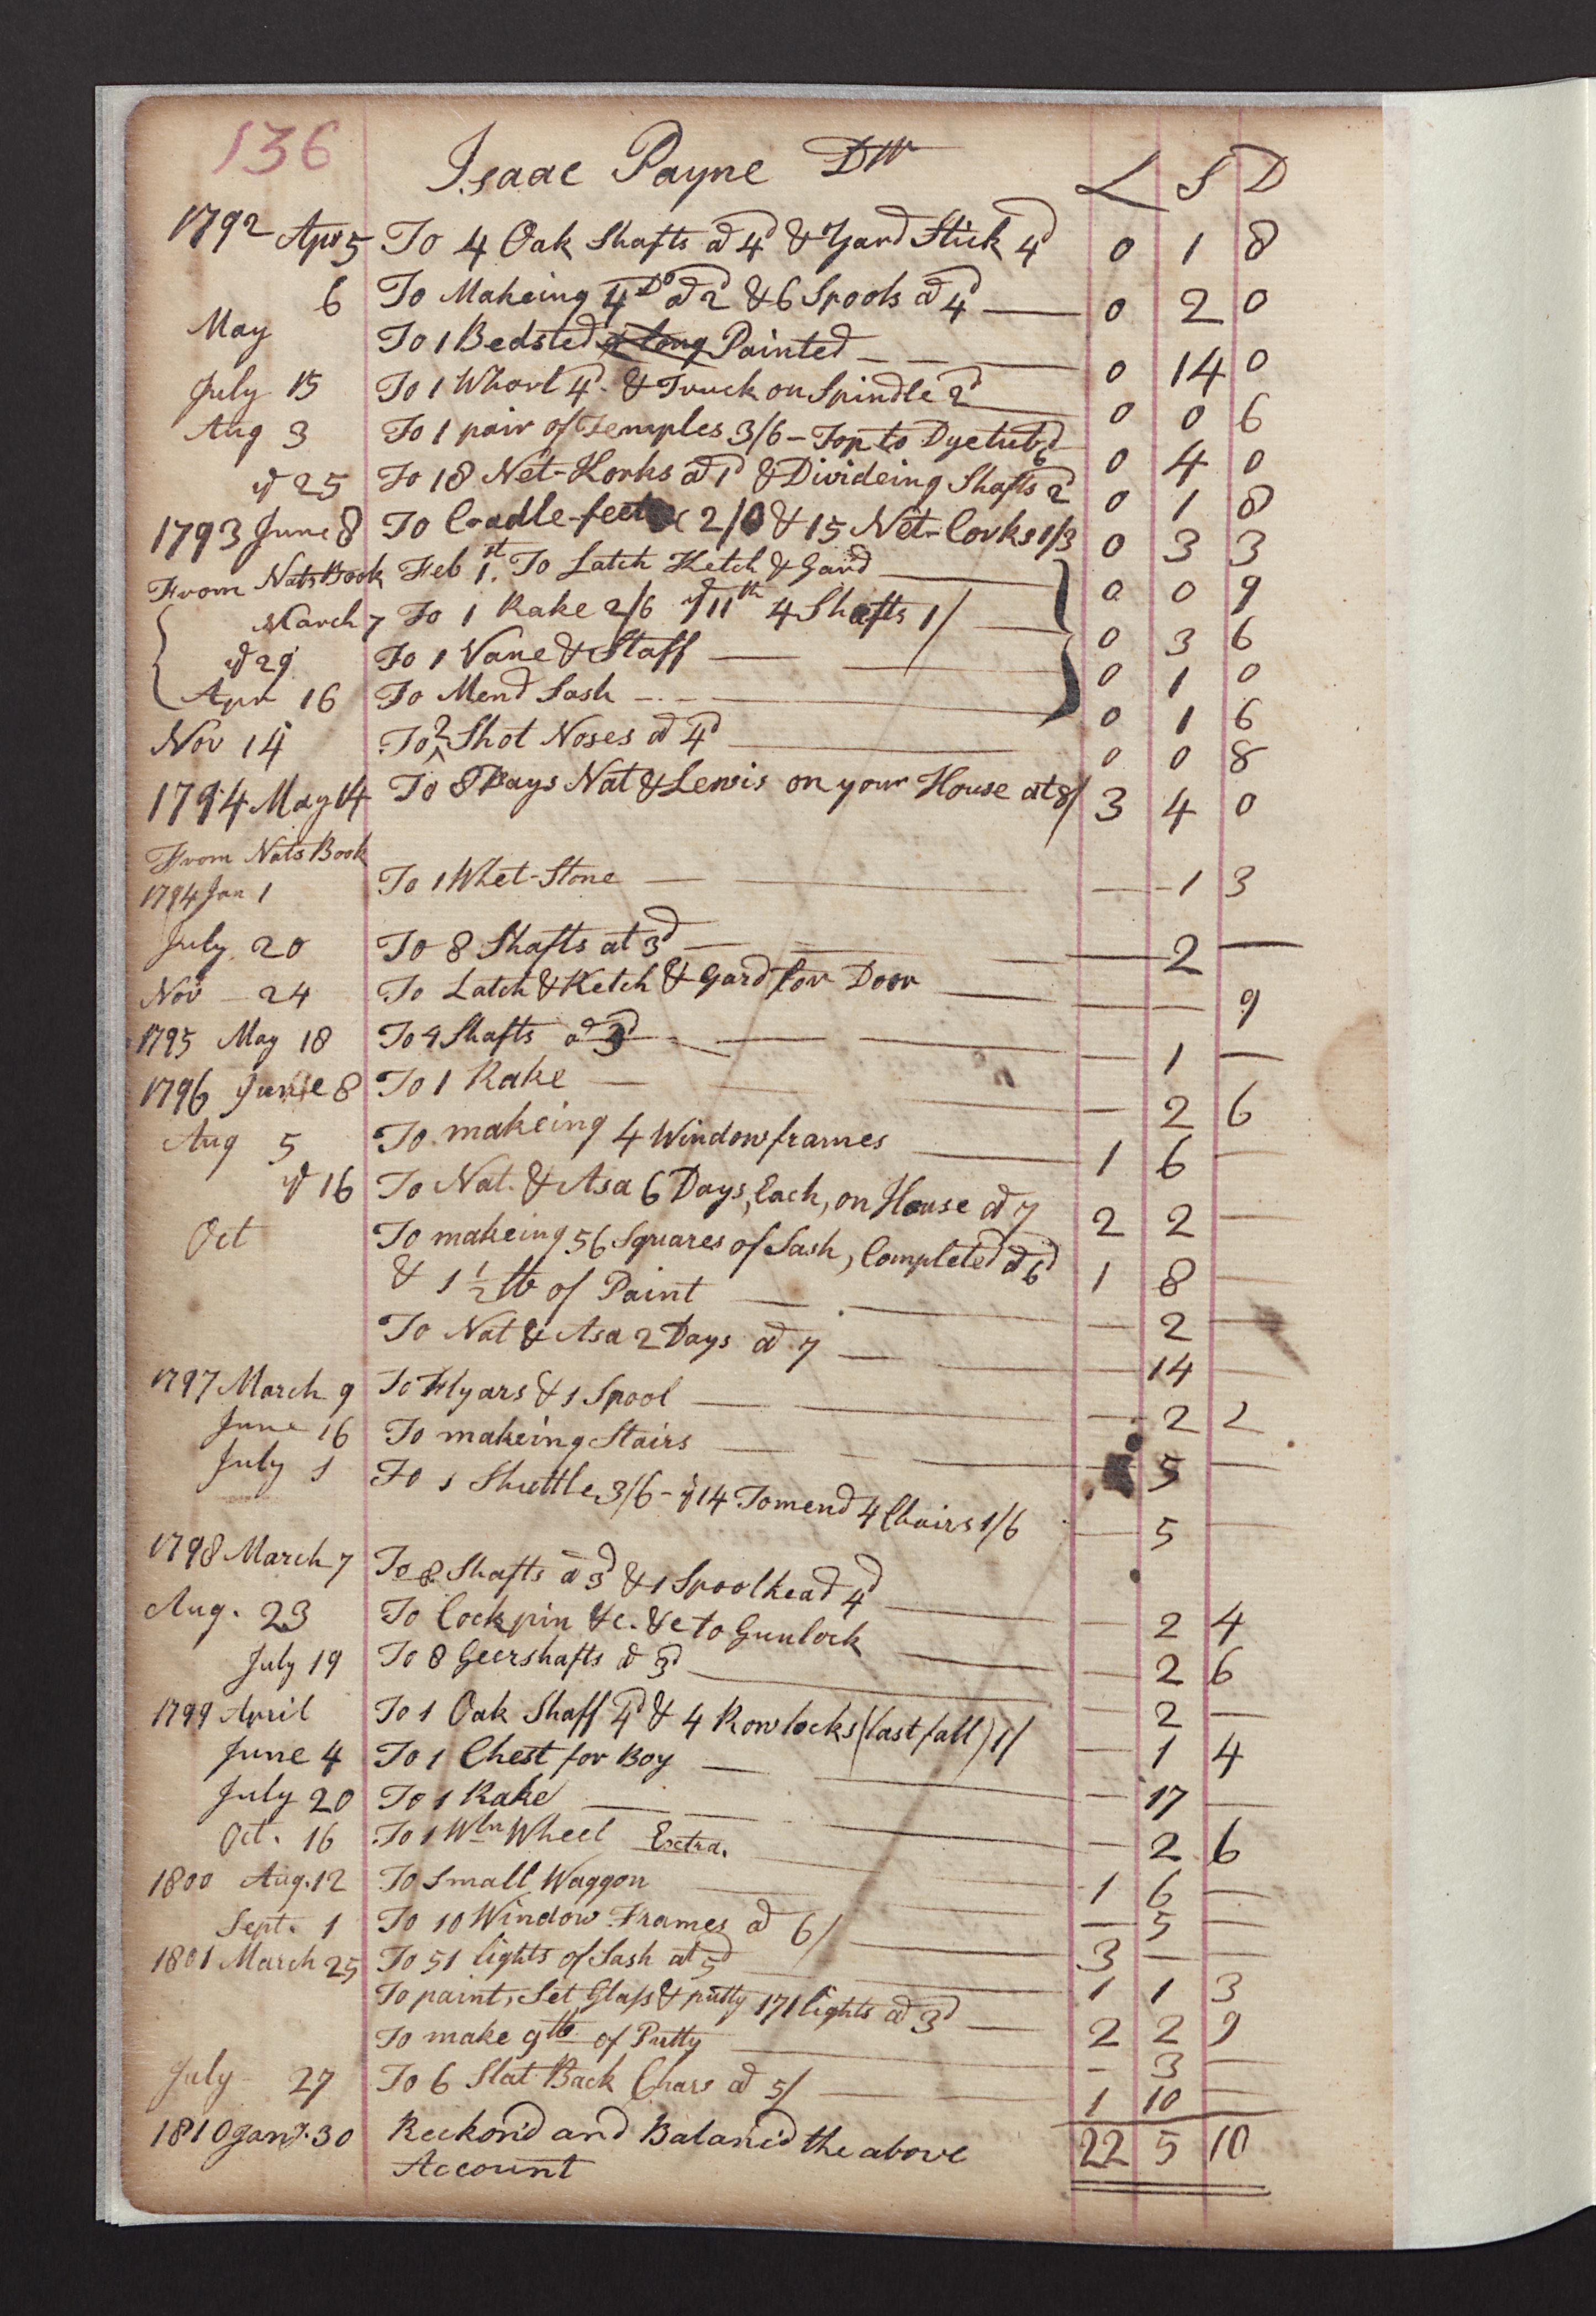 136
Isaac Payne Dr
L S D
1792 Apr 5 To 4 Oak Shafts a 4d & Yard Stick 4d 0 1 8
6 To Makeing 4 Do a 2d & 6 Spools a 4d 0 2 0
May To 1 Bedsted Painted 0 14 0
July 15 To 1 Whorl 4d & Truck on Spindle 2d 0 0 6
Aug 3 To 1 pair of Temples 3/6 - Top to Dyetub 6d 0 4 0
25 To 18 Net-Korks a 1d & Divideing Shafts 2d 0 1 8
1793 June 8 To Cradle-feet 2/0 & 15 Net-Corks 1/3 0 3 3
From Nats Book Feb 1st. To Latch Ketch & Gard 0 0 9
March 7 To 1 Rake 2/6 11th 4 Shafts 1/ 0 3 6
29 To 1 Vane & Staff 0 1 0
Apr 16 To Mend Sash 0 1 6
Nov 14 To 2 Shot Noses a 4d 0 0 8
1794 May 14 To 8 Days Nat & Lewis on your House at 8/ 3 4 0
From Nats Book
1794 Jan 1 To 1 Whet-Stone - 1 3
July 20 To 8 Shafts at 3d - 2 -
Nov - 24 To Latch & Ketch & Gard for Door - - 9
1795 May 18 To 4 Shafts a 3d - 1 -
1796 June 8 To 1 Rake - 2 6
Aug 5 To makeing 4 Windowframes 1 6 -
16 To Nat. & Asa 6 Days, Each, on House a 7 2 2 -
Oct To makeing 56 Squares of Sash, Completed a 6d 1 8 -
& 1 1/2 lb of Paint - 2 -
To Nat & Asa 2 Days a 7 - 14 -
1797 March 9 To Flyars & 1 Spool - 2 2
June 16 To makeing Stairs - 5 -
July 1 To 1 Shuttle 3/6 - 14 To mend 4 Chairs 1/6 - 5 -
1798 March 7 To 8 Shafts a 3d & 1 Spoolhead 4d - 2 4
Aug. 23 To Cockpin &c. &c to Gunlock - 2 6
July 19 To 8 Geershafts a 3d - 2 -
1799 April To 1 Oak Shaff 4d & 4 Rowlocks (last fall) 1/ - 1 4
June 4 To 1 Chest for Boy - 17 -
July 20 To 1 Rake - 2 6
Oct. 16 To 1 Wln Wheel Extra. 1 6 -
1800 Aug. 12 To Small Waggon - 5 -
Sept. 1 To 10 Window Frames a 6/ 3 - -
1801 March 25 To 51 lights of Sash at 5d 1 1 3
To paint, Set Glass & putty 171 lights a 3d 2 2 9
To make 9 lb of Putty - 3 -
July - 27 To 6 Slat Back Chars a 5/ 1 10 -
1810 Jany. 30 Reckon'd and Balanc'd the above 22 5 10
Account